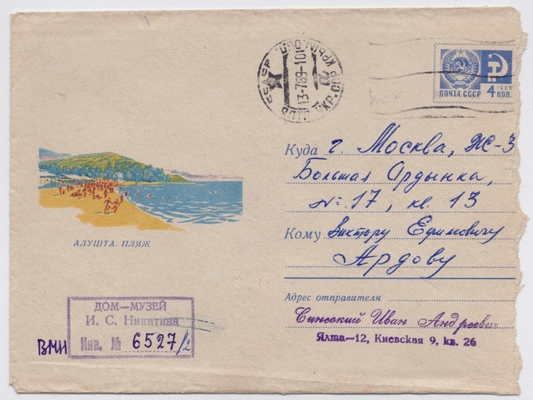 СССР
13-7-69-10
ПОЧТА СССР
4 КОП.
Куда г. Москва, Ж-
Большая Ордынка,
№ 17, кв. 13
Кому Виктору Ефимовичу
Ардову
АЛУШТА. ПЛЯЖ
Адрес отправителя
Иван Андреевич
Ялта—12, Киевская 9, кв. 26
ДОМ—МУЗЕЙ
И. С. Никитина
Инв. № 6527/2